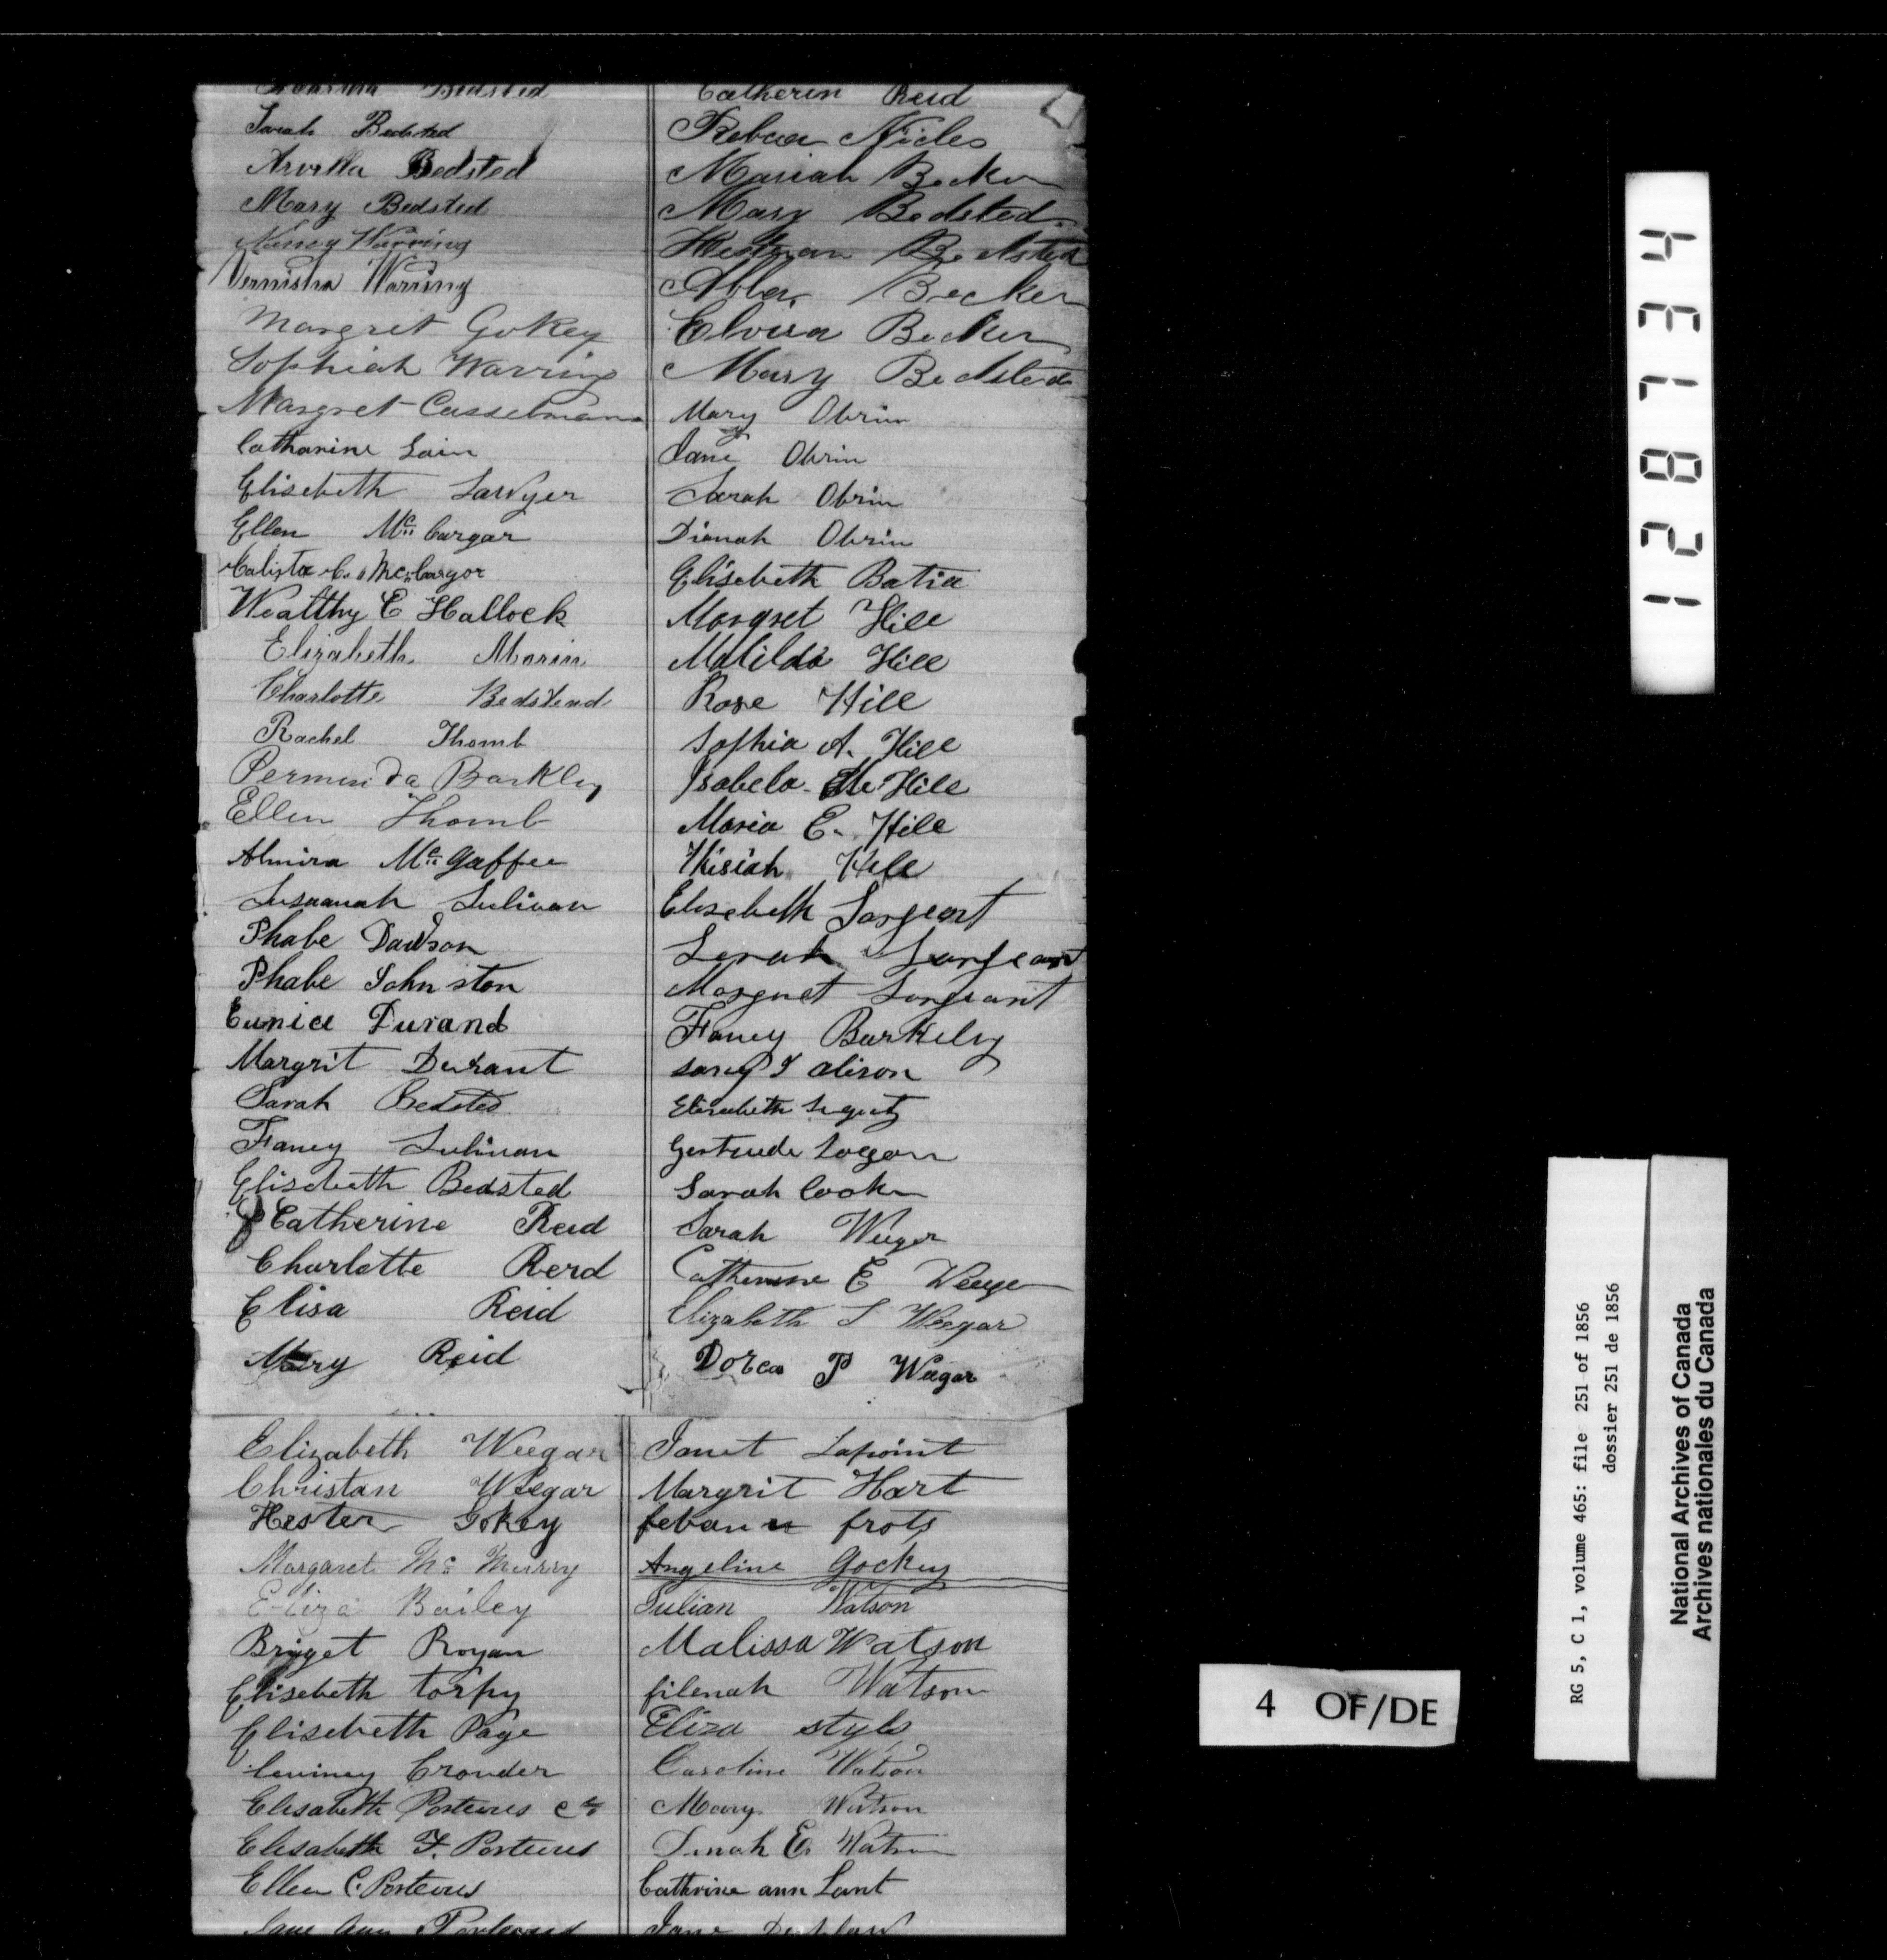 Bedsted
Sarah Bedsted
Arvilla Bedsted
Mary Bedsted
Nancy Warring
Vernisha Warring
Margret Gokey
Sophiah Warring
Margret Casselman
Catharine Lain
Elisebeth Sawyer
Ellen Mc Cargar
Calista C. McCargor
Wealthy E Hallock
Elizabeth Morin
Charlotte Bedstead
Rachel Thomb
Barkley
Ellen Thomb
Almira Mc Gaffee
Susannah Sulivan
Phabe Dawson
Phabe Johnston
Eunice Durand
Margrit Durant
Sarah Bedsted
Fancy Sulivan
Elisebeth Bedsted
Catherine Reid
Charlotte Reid
Elisa Reid
Mary Reid
Catherin Reid
Rebcca
Mariah Becker
Mary Bedsted
Bedsted
Becker
Elvira Becker
Mary Bedsted
Mary Obrin
Jane Obrin
Sarah Obrin
Dianah Obrin
Elisebeth Batia
Margret Hill
Matilda Hill
Rose Hill
Sophia A. Hill
Isabela Hill
Maria E. Hill
Kisiah Hill
Elisebeth Sargeant
Sarah Sargeant
Margret Sargeant
Fancy Barkely
alison
Elisabeth
Gertrude Logan
Sarah Cook
Sarah Weeger
Catherine E Weeger
Elizabeth S Weegar
Dorca P Weegar
Elizabeth Weegar
Christan Weegar
Hester Gokey
Margaret Mc Murry
Eliza Bailey
Briget Royan
Elisebeth torpy
Elisebeth Page
Crouder
Elisabeth Porteous
Elisabeth F. Porteous
Ellen C. Porteous
Jane Ann Porteous
Janet Lapoint
Margrit Hart
frots
Angeline Gockey
Julian Watson
Malissa Watson
filenah Watson
Eliza styls
Caroline Watson
Mary Watson
E. Watson
Cathrine ann Lant
Jane
128734
4 OF/DE
RG 5, C 1, volume 465: file 251 of 1856
dossier 251 de 1856
National Archives of Canada
Archives nationales du Canada